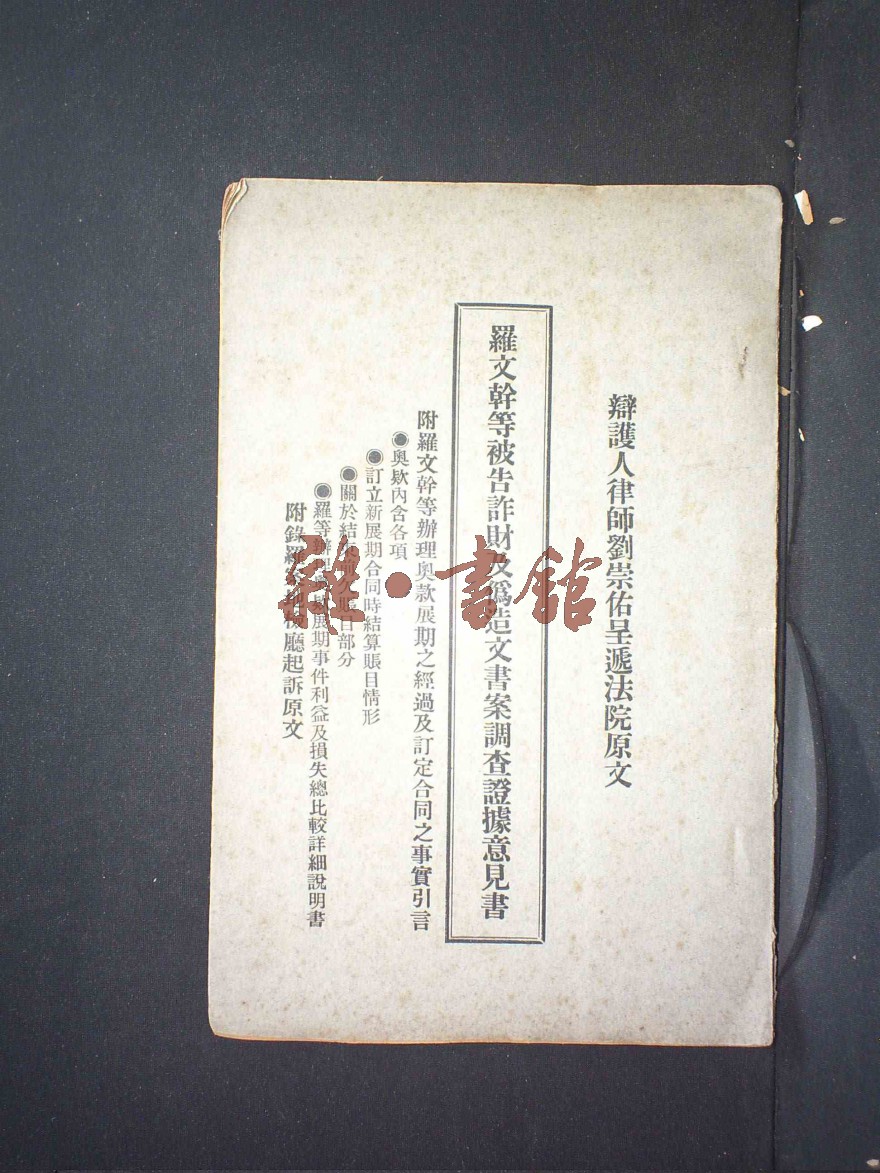 辯護人律師劉崇佑呈遞法院原文
羅文幹等被告詐財及僞造文書案調查證據意見書
附羅文幹等辦理奧款展期之經過及訂定合同之事實引言
●奧欵內含各項
●訂立新展期合同時結算賬目情形
●關於結 賬目部分
●羅等辦理奧欵展期事件利益及損失總比較詳細說明書
附錄羅 檢廳起訴原文
雜·書館